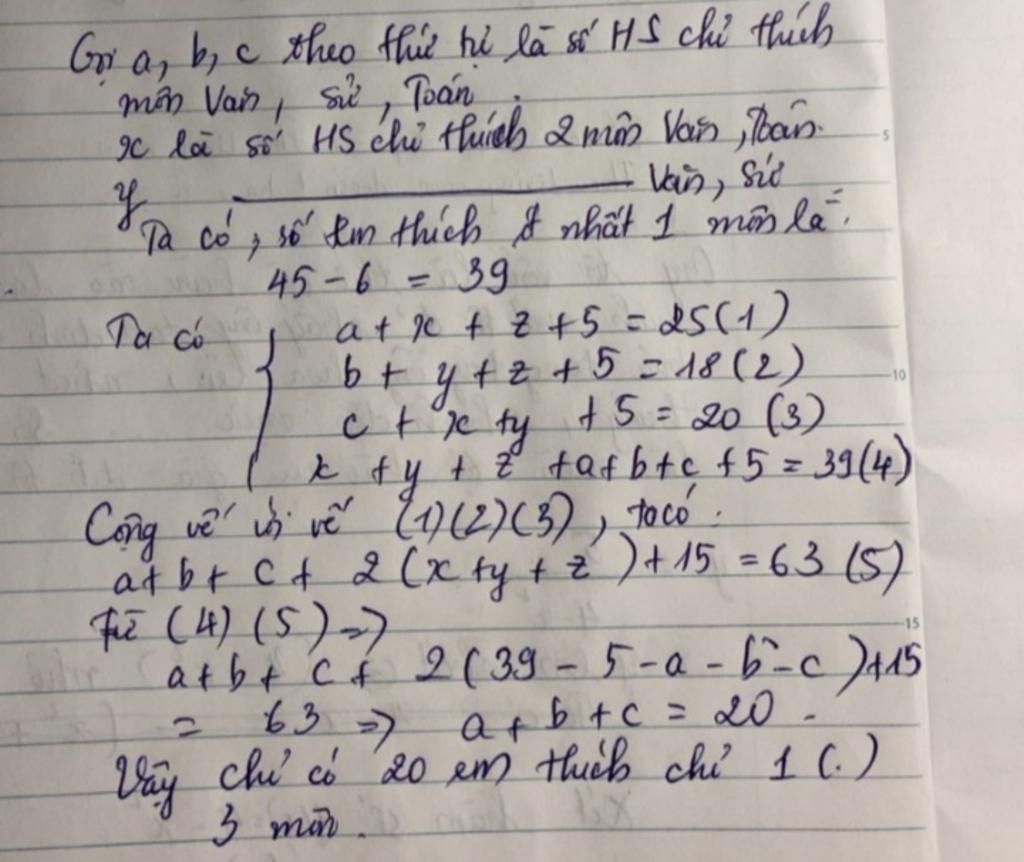 Gọi a, b, c theo thứ tự là số HS chỉ thích
môn Văn, Sử, Toán.
x là số HS chỉ thích 2 môn Văn, Toán.
y ——————— Văn, Sử
Ta có, số em thích ít nhất 1 môn là:
45 - 6 = 39
Ta có { a + x + z + 5 = 25 (1)
b + y + z + 5 = 18 (2)
c + x + y + 5 = 20 (3)
x + y + z + a + b + c + 5 = 39 (4)
Cộng vế với vế (1)(2)(3), ta có:
a + b + c + 2(x + y + z) + 15 = 63 (5)
Từ (4) (5) =>
a + b + c + 2(39 - 5 - a - b - c) + 15
= 63 => a + b + c = 20.
Vậy chỉ có 20 em thích chỉ 1 (.)
3 môn.